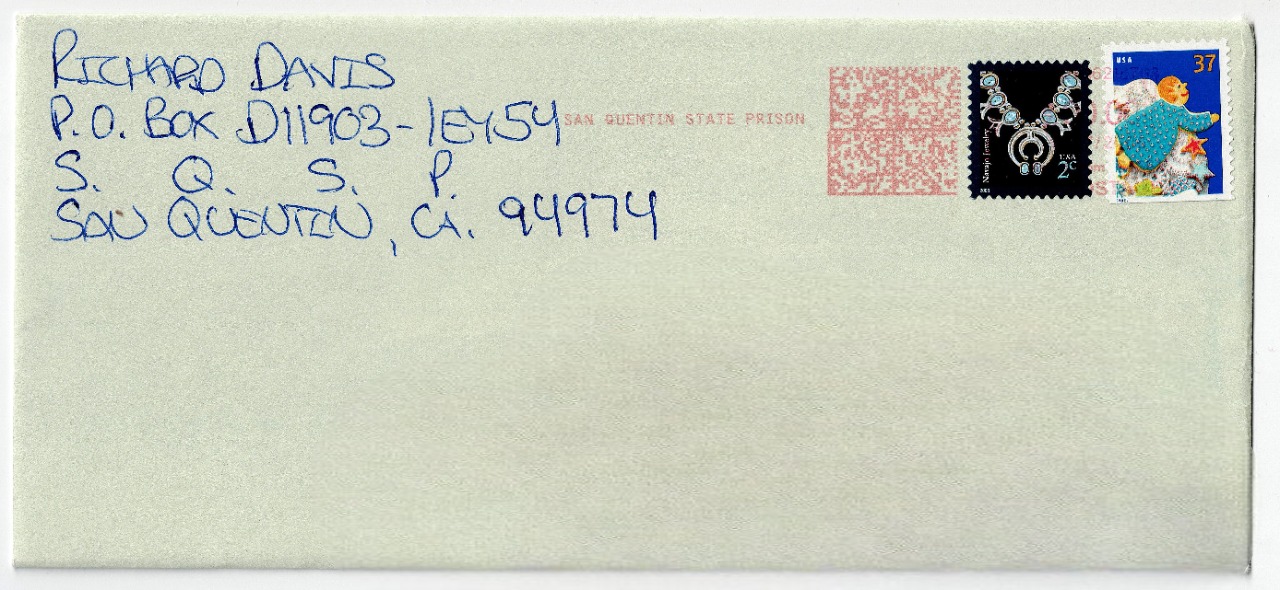 RICHARD DAVIS
P.O. BOX D11903-1EY54
S. Q. S. P.
SAN QUENTIN, CA. 94974
SAN QUENTIN STATE PRISON
Navajo Jewelry
USA
2c
USA
37